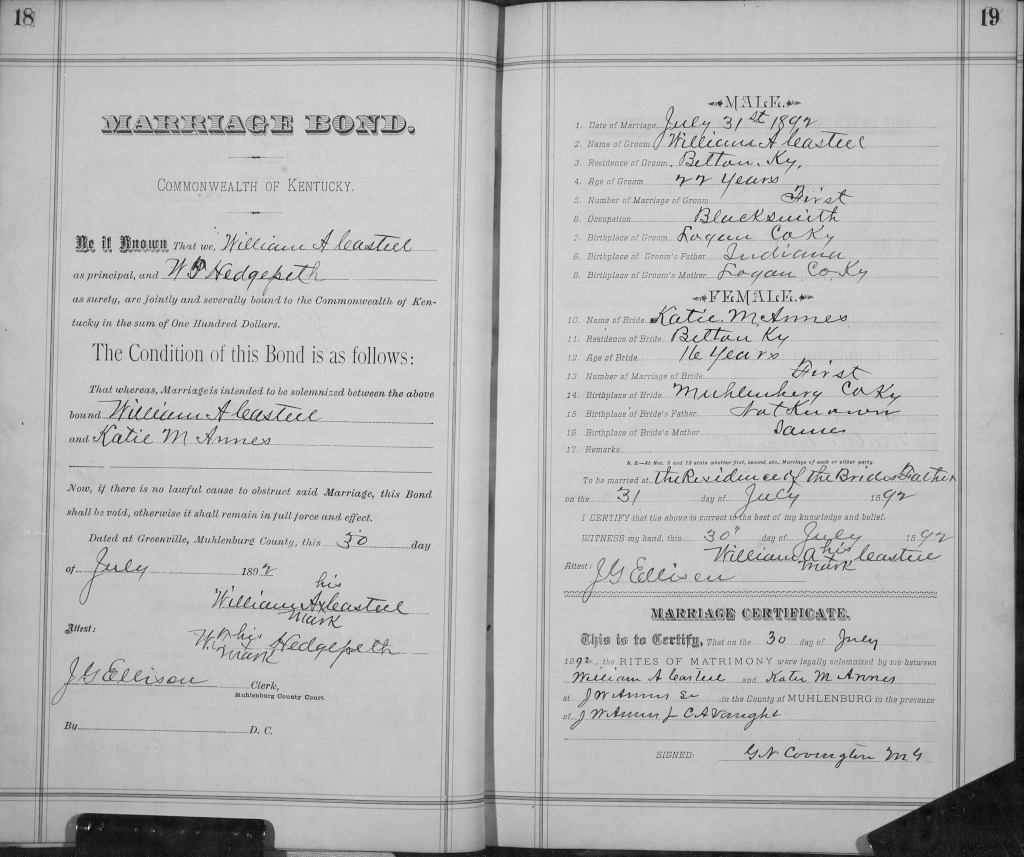 18
MARRIAGE BOND.
COMMONWEALTH OF KENTUCKY.
Be it Known That we, William A Casteel
as principal, and W Hedgepeth
as surety, are jointly and severally bound to the Commonwealth of Ken-
tucky in the sum of One Hundred Dollars.
The Condition of this Bond is as follows:
That whereas, Marriage is intended to be solemnized between the above
bound William A Casteel
and Katie M Annes
Now, if there is no lawful cause to obstruct said Marriage, this Bond
shall be void, otherwise it shall remain in full force and effect.
Dated at Greenville, Muhlenburg County, this 30 day
of July 1892
his
William A x Casteel
mark
Attest:
W his Hedgepeth
x
mark
J G Ellison Clerk,
Muhlenburg County Court.
By D. C.
19
MALE.
1. Date of Marriage. July 31st 1892
2. Name of Groom William A Casteel
3. Residence of Groom. Belton. Ky.
4. Age of Groom 22 Years
5. Number of Marriage of Groom First
6. Occupation Blacksmith
7. Birthplace of Groom Logan Co Ky
8. Birthplace of Groom's Father Indiana
9. Birthplace of Groom's Mother Logan Co Ky
FEMALE.
10. Name of Bride Katie M Annes
11. Residence of Bride Belton Ky
12. Age of Bride 16 Years
13. Number of Marriage of Bride First
14. Birthplace of Bride Muhlenberg Co Ky
15. Birthplace of Bride's Father Not Known
16. Birthplace of Bride's Mother Same
17. Remarks
N. B.—At Nos. 5 and 13 state whether first, second, etc., Marriage of each or either party.
To be married at the Residence of the Brides Father
on the 31 day of July 1892
I CERTIFY that the above is correct to the best of my knowledge and belief.
WITNESS my hand, this 30" day of July 1892
his
William A x Casteel
mark
Attest: J G Ellison
MARRIAGE CERTIFICATE.
This is to Certify, That on the 30 day of July
1892, the RITES OF MATRIMONY were legally solemnized by me between
William A Casteel and Katie M Annes
at J W Annis Sr in the County of MUHLENBURG in the presence
of J W Annis Jr C A Vaught
SIGNED: G N Covington M G